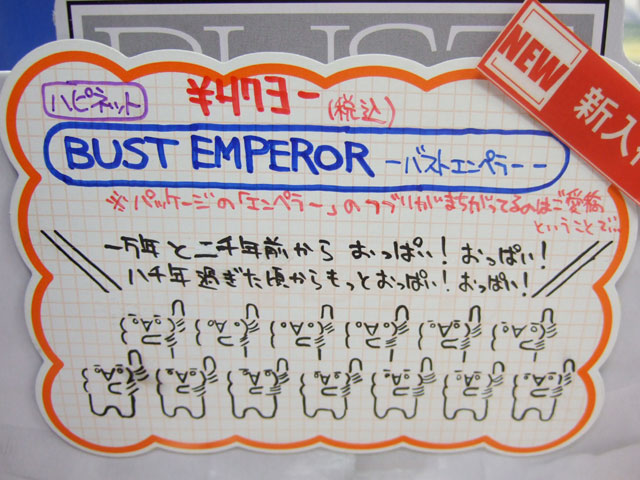 BUST
NEW
新入
ハピネット
¥473-(税込)
BUST EMPEROR -バストエンペラー-
※パッケージの「エンペラー」のつづりがまちがってるのはご愛嬌
ということで…
一万年と二千年前から おっぱい!おっぱい!
八千年過ぎた頃からもっとおっぱい!おっぱい!